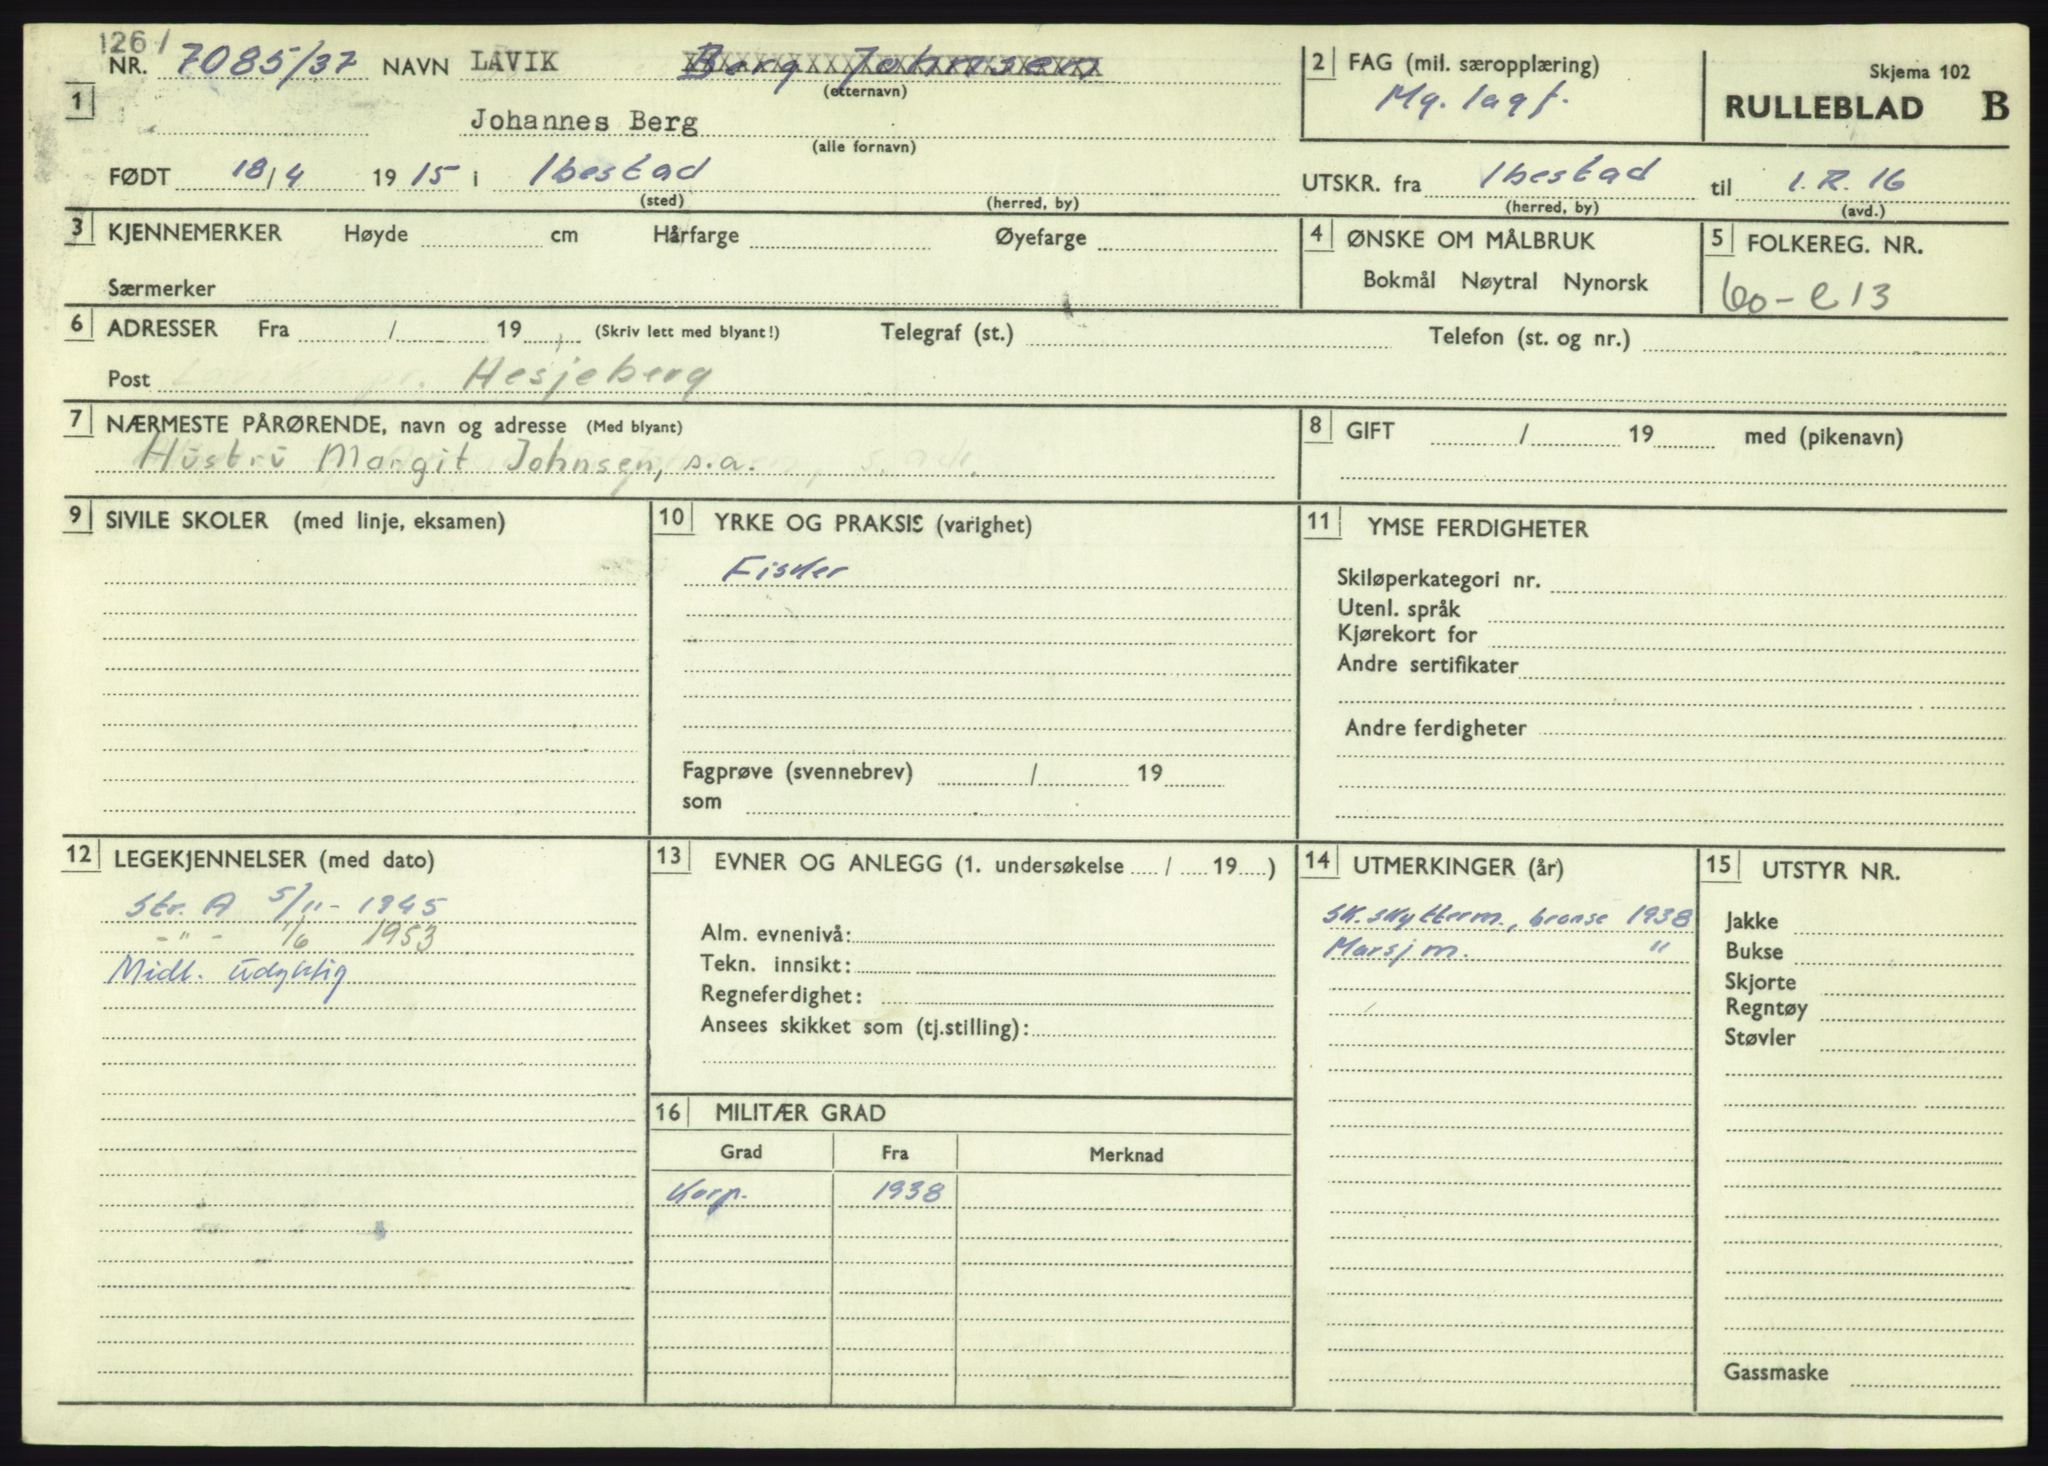 1261
NR. 7085/37 NAVN LAVIK Berg Johnsen
(etternavn)
1
Johannes Berg
(alle fornavn)
FØDT 18/4 1915 i Ibestad
(sted) (herred, by)
2 FAG (mil. særopplæring)
Mg. lagf.
Skjema 102
RULLEBLAD B
UTSKR. fra Ibestad til I.R. 16
(herred, by) (avd.)
3 KJENNEMERKER Høyde cm Hårfarge Øyefarge
Særmerker
4 ØNSKE OM MÅLBRUK
Bokmål Nøytral Nynorsk
5 FOLKEREG. NR.
60-e13
6 ADRESSER Fra / 19 (Skriv lett med blyant!) Telegraf (st.) Telefon (st. og nr.)
Post Hesjeberg
7 NÆRMESTE PÅRØRENDE, navn og adresse (Med blyant)
Hustru Margit Johnsen, s.a.
8 GIFT / 19 med (pikenavn)
9 SIVILE SKOLER (med linje, eksamen)
10 YRKE OG PRAKSIS (varighet)
Fisker
Fagprøve (svennebrev) / 19
som
11 YMSE FERDIGHETER
Skiløperkategori nr.
Utenl. språk
Kjørekort for
Andre sertifikater
Andre ferdigheter
12 LEGEKJENNELSER (med dato)
Str. A 5/11-1945
-"- 1/6 1953
Midl. udyktig
13 EVNER OG ANLEGG (1. undersøkelse / 19 )
Alm. evnenivå:
Tekn. innsikt:
Regneferdighet:
Ansees skikket som (tj.stilling):
14 UTMERKINGER (år)
Sk.skytterm., bronse 1938
Marsjm. "
15 UTSTYR NR.
Jakke
Bukse
Skjorte
Regntøy
Støvler
Gassmaske
16 MILITÆR GRAD
Grad Fra Merknad
Korp. 1938